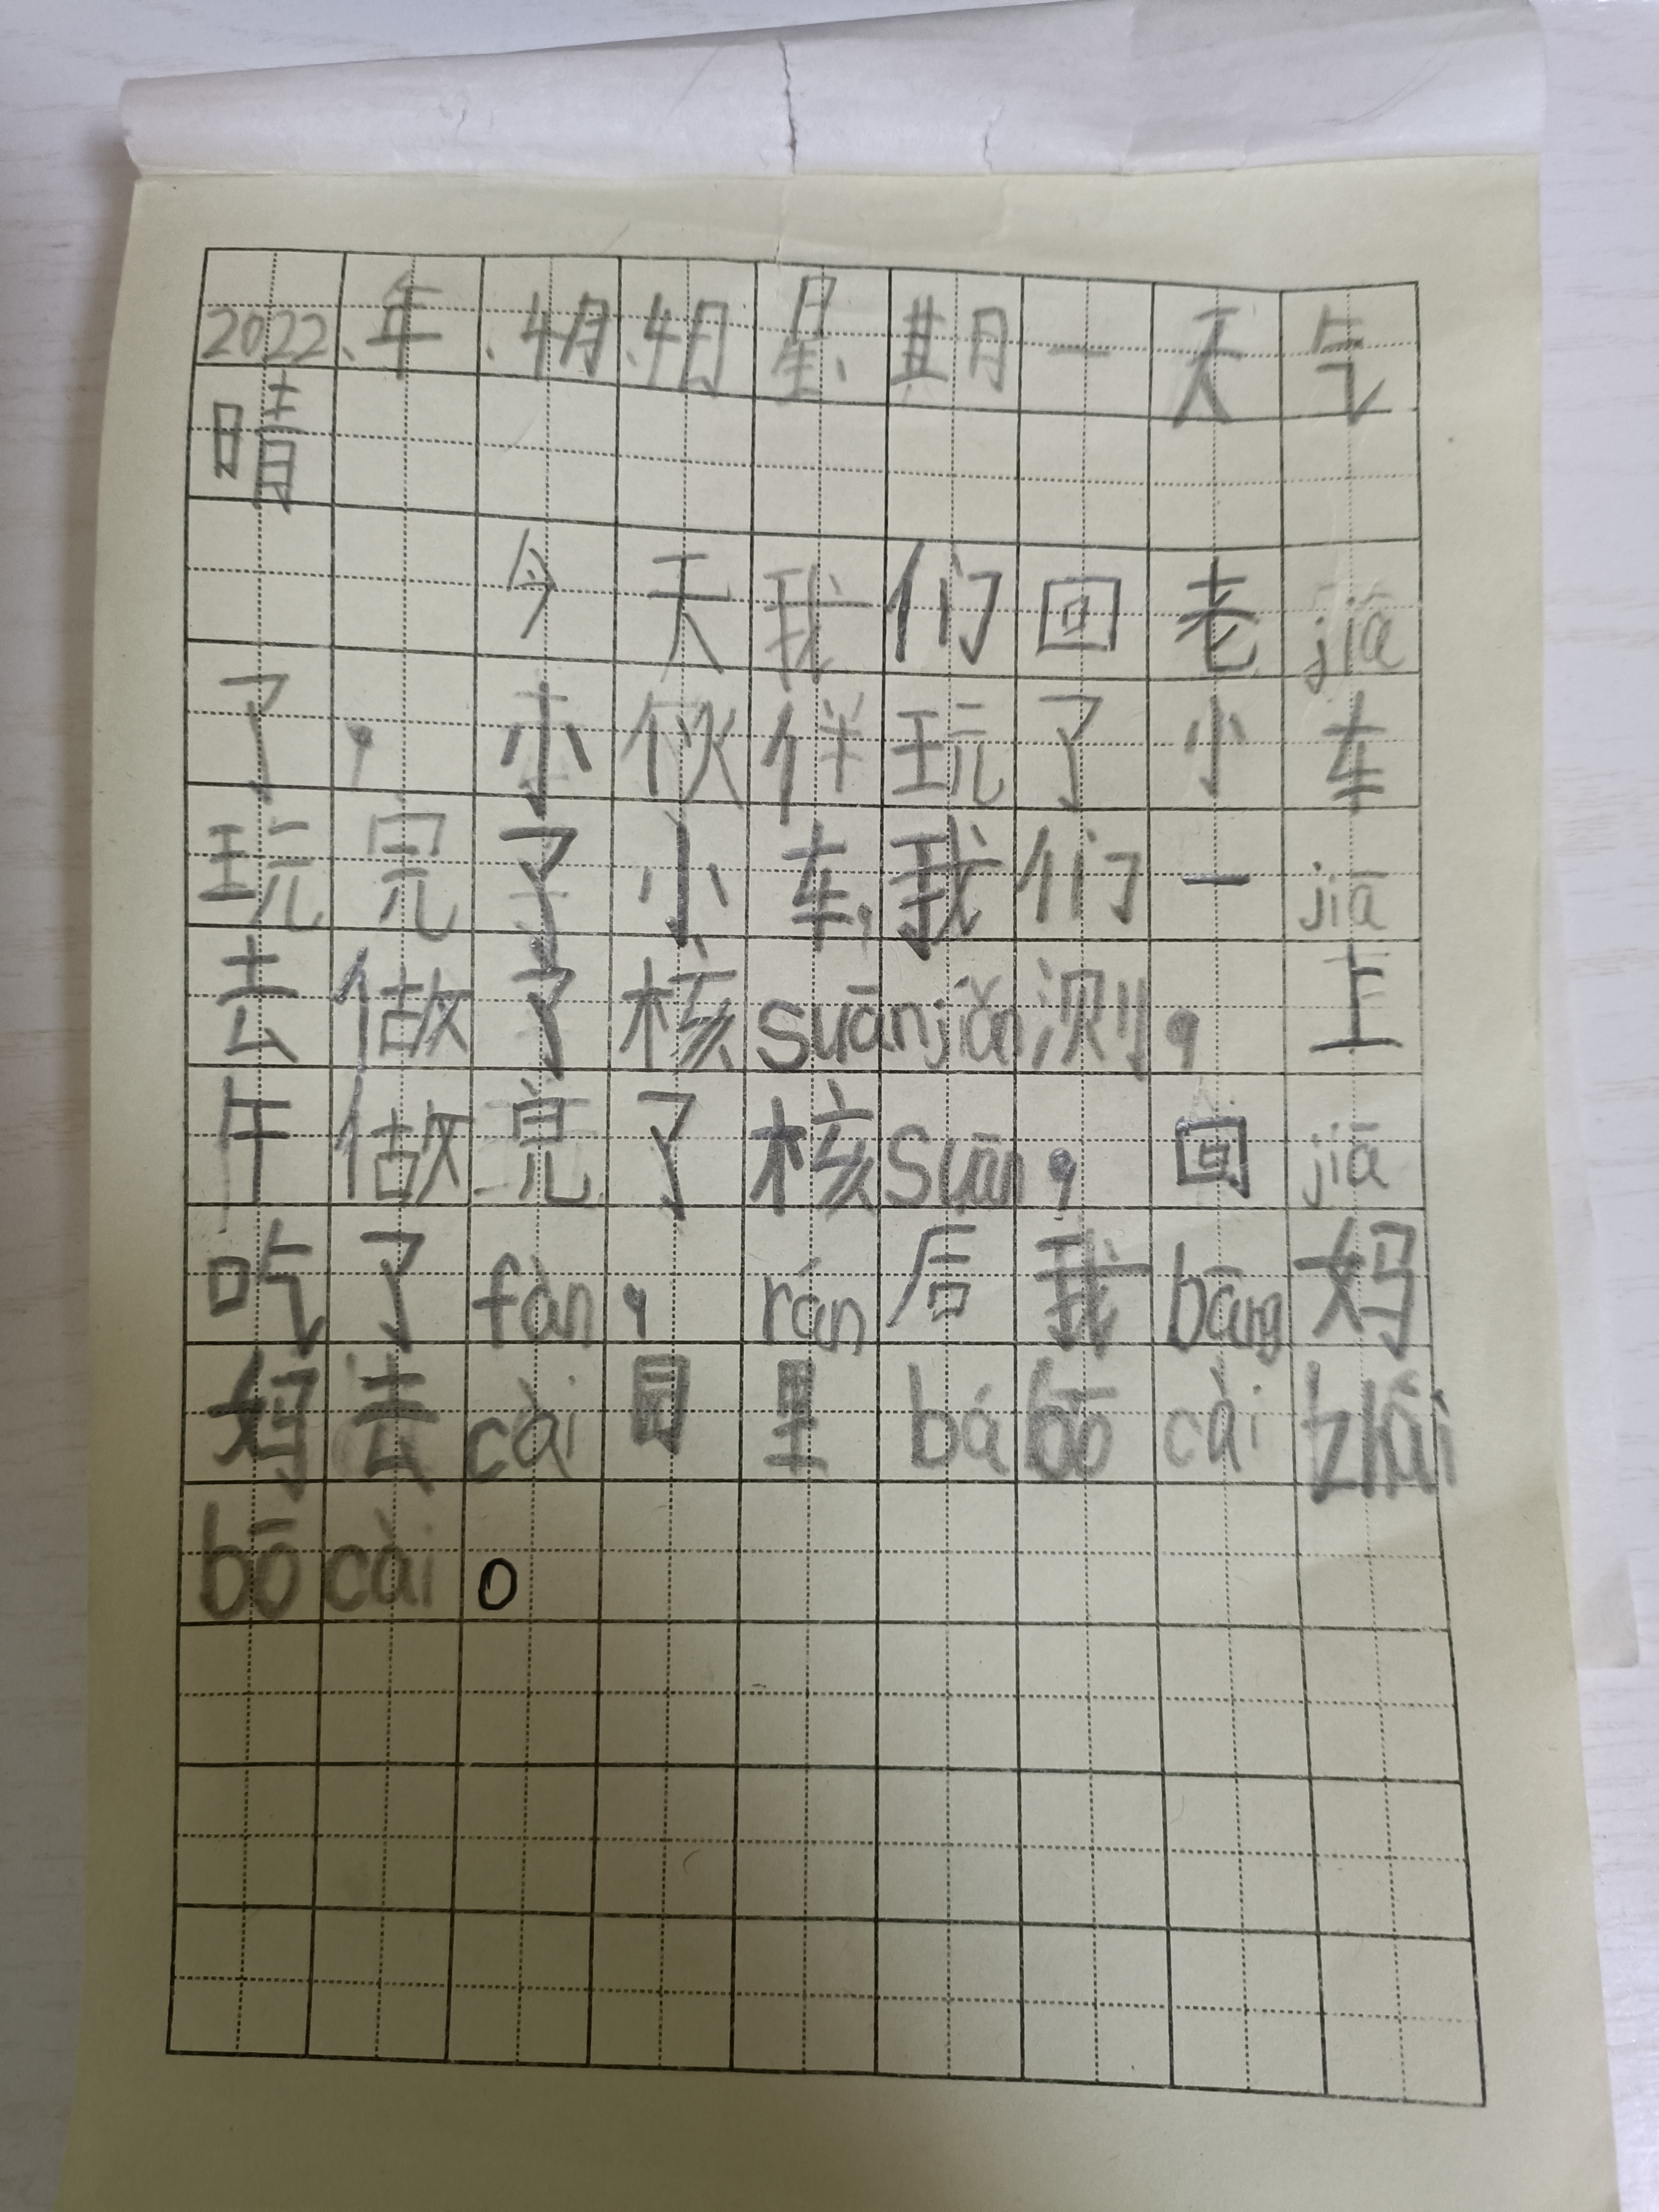 2022、年、4月、4日星期一天气
晴
今天我们回老jiā
了，小伙伴玩了小车
玩完了小车，我们一jiā
去做了核suānjiǎn测，上
午做完了核suān，回jiā
吃了fàn，rán后我bāng妈
妈去cài园里bábōcàizhāi
bōcài。